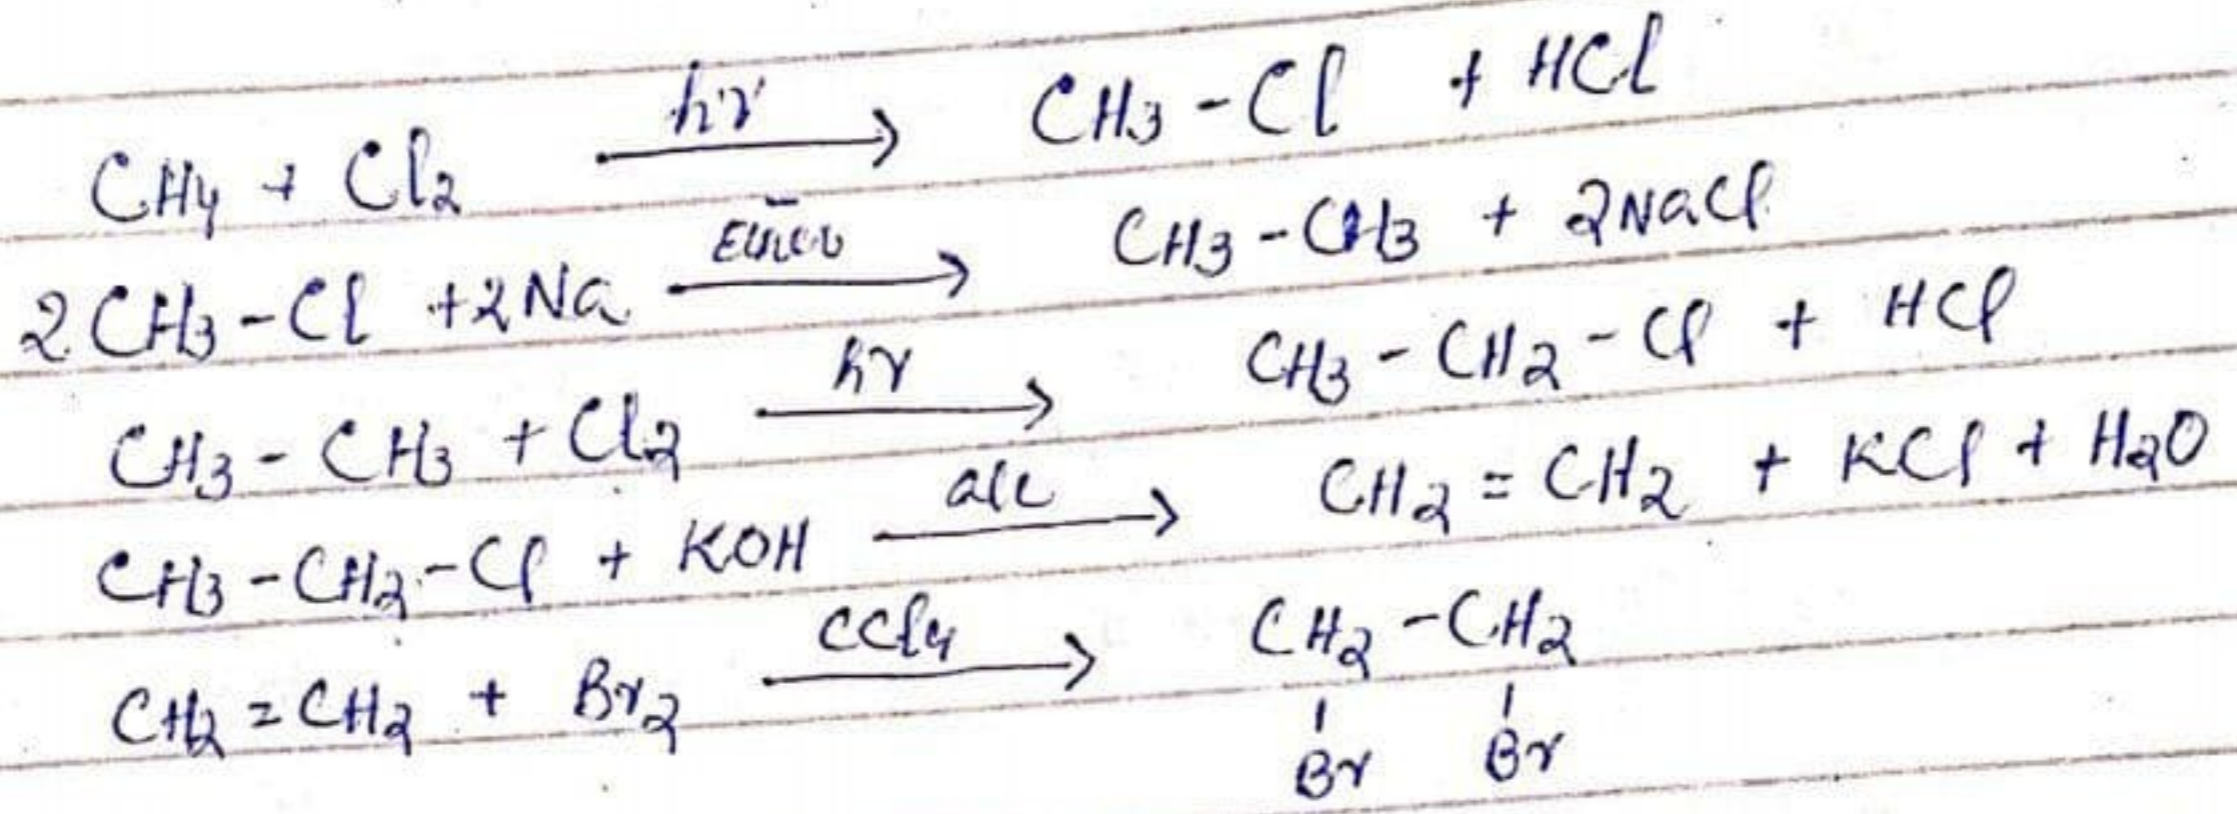 CH4 + Cl2 hν → CH3-Cl + HCl
2CH3-Cl +2Na → CH3-CH3 + 2NaCl
CH3-CH3 + Cl2 hν → CH3-CH2-Cl + HCl
CH3-CH2-Cl + KOH alc → CH2=CH2 + KCl + H2O
CH2=CH2 + Br2 CCl4 → CH2-CH2
Br Br